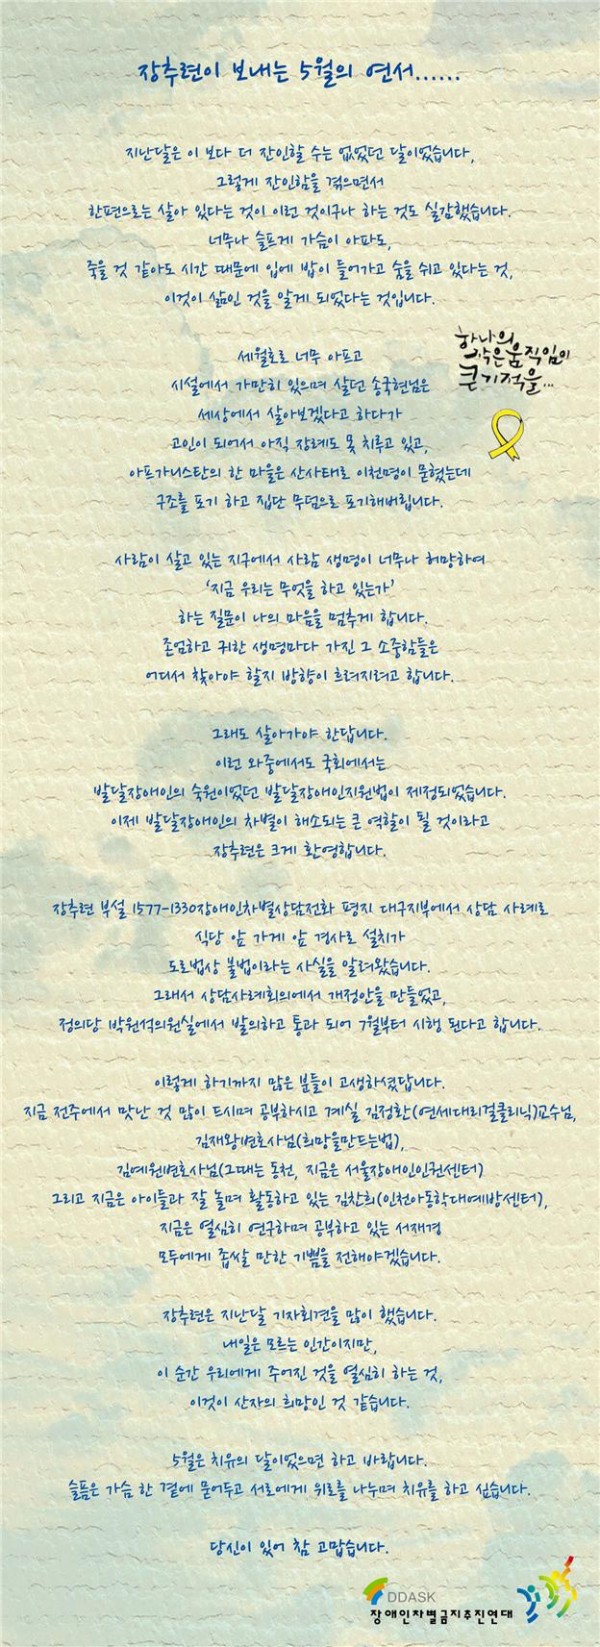 장추련이 보내는 5월의 연서......
지난달은 이 보다 더 잔인할 수는 없었던 달이었습니다,
그렇게 잔인함을 겪으면서
한편으로는 살아 있다는 것이 이런 것이구나 하는 것도 실감했습니다.
너무나 슬프게 가슴이 아파도,
죽을 것 같아도 시간 때문에 입에 밥이 들어가고 숨을 쉬고 있다는 것,
이것이 삶인 것을 알게 되었다는 것입니다.
하나의
작은 움직임이
큰 기적을...
세월호로 너무 아프고
시설에서 가만히 있으며 살던 송국현님은
세상에서 살아보겠다고 하다가
고인이 되어서 아직 장례도 못 치루고 있고,
아프가니스탄의 한 마을은 산사태로 이천명이 묻혔는데
구조를 포기 하고 집단 무덤으로 포기해버립니다.
사람이 살고 있는 지구에서 사람 생명이 너무나 허망하여
'지금 우리는 무엇을 하고 있는가'
하는 질문이 나의 마음을 멈추게 합니다.
존엄하고 귀한 생명마다 가진 그 소중함들은
어디서 찾아야 할지 방향이 흐려지려고 합니다.
그래도 살아가야 한답니다.
이런 와중에서도 국회에서는
발달장애인의 숙원이었던 발달장애인지원법이 제정되었습니다.
이제 발달장애인의 차별이 해소되는 큰 역할이 될 것이라고
장추련은 크게 환영합니다.
장추련 부설 1577-1330장애인차별상담전화 평지 대구지부에서 상담 사례로
식당 앞 가게 앞 경사로 설치가
도로법상 불법이라는 사실을 알려왔습니다.
그래서 상담사례회의에서 개정안을 만들었고,
정의당 박원석의원실에서 발의하고 통과 되어 7월부터 시행 된다고 합니다.
이렇게 하기까지 많은 분들이 고생하셨답니다.
지금 전주에서 맛난 것 많이 드시며 공부하시고 계실 김정환(연세대리걸클리닉)교수님,
김재왕변호사님(희망을만드는법),
김예원변호사님(그때는 동천, 지금은 서울장애인인권센터)
그리고 지금은 아이들과 잘 놀며 활동하고 있는 김찬희(인천아동학대예방센터),
지금은 열심히 연구하며 공부하고 있는 서재경
모두에게 좁쌀 만한 기쁨을 전해야겠습니다.
장추련은 지난달 기자회견을 많이 했습니다.
내일은 모르는 인간이지만,
이 순간 우리에게 주어진 것을 열심히 하는 것,
이것이 산자의 희망인 것 같습니다.
5월은 치유의 달이었으면 하고 바랍니다.
슬픔은 가슴 한 곁에 묻어두고 서로에게 위로를 나누며 치유를 하고 싶습니다.
당신이 있어 참 고맙습니다.
DDASK
장애인차별금지추진연대